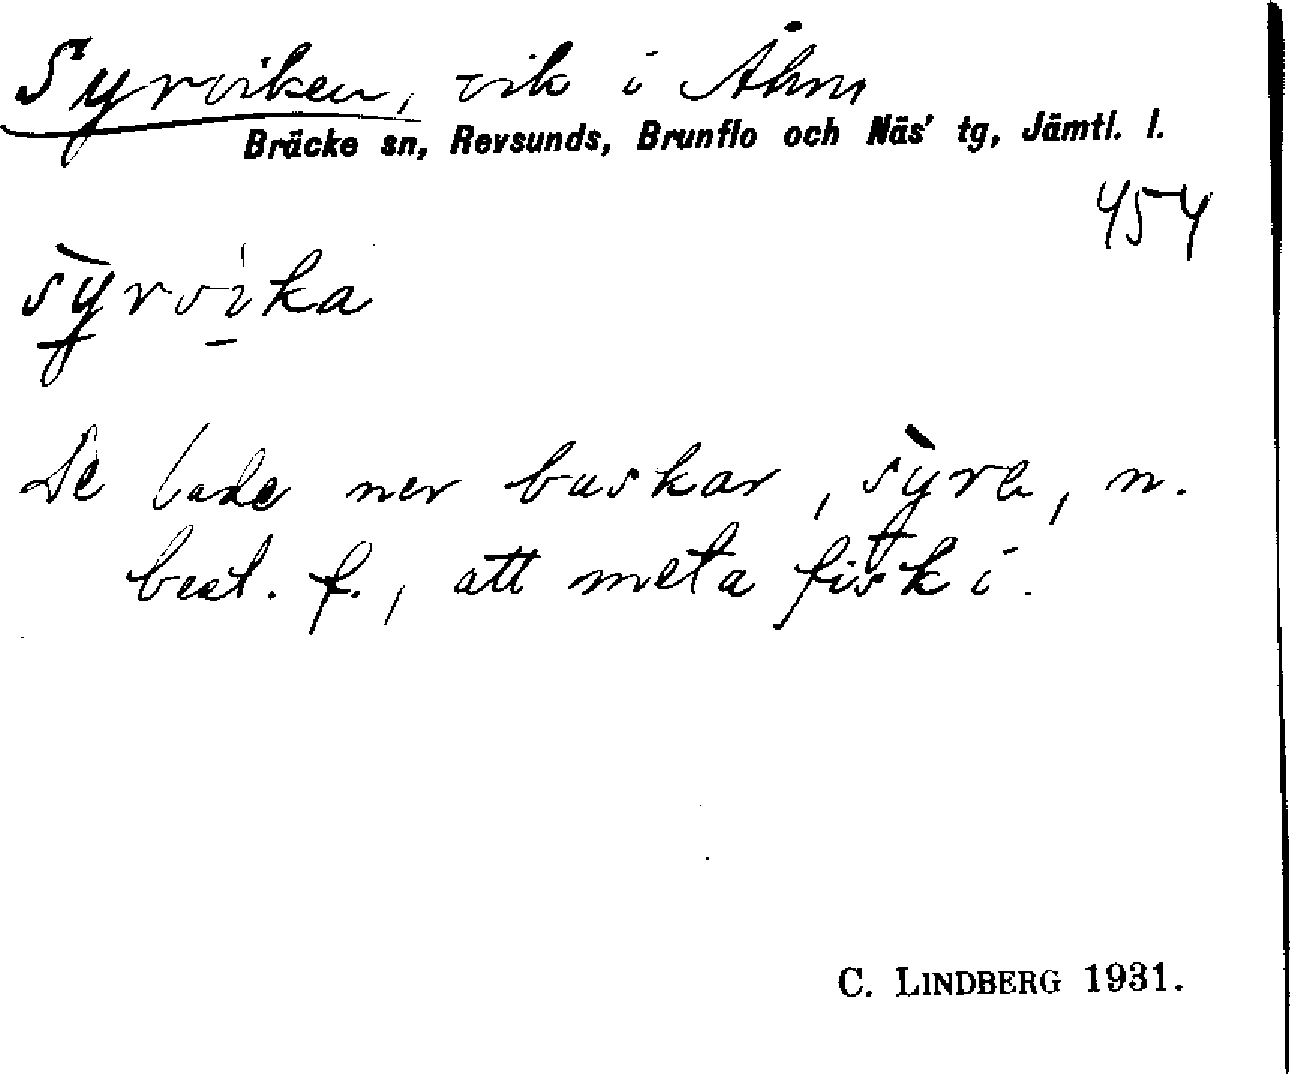 Syrviken, vik i Åhm
Bräcke sn, Revsunds, Brunflo och Näs' tg, Jämtl. l.
454
sỳrvika
De lade ner buskar, sỳre, n.
best. f., att meta fisk i.
C. LINDBERG 1931.